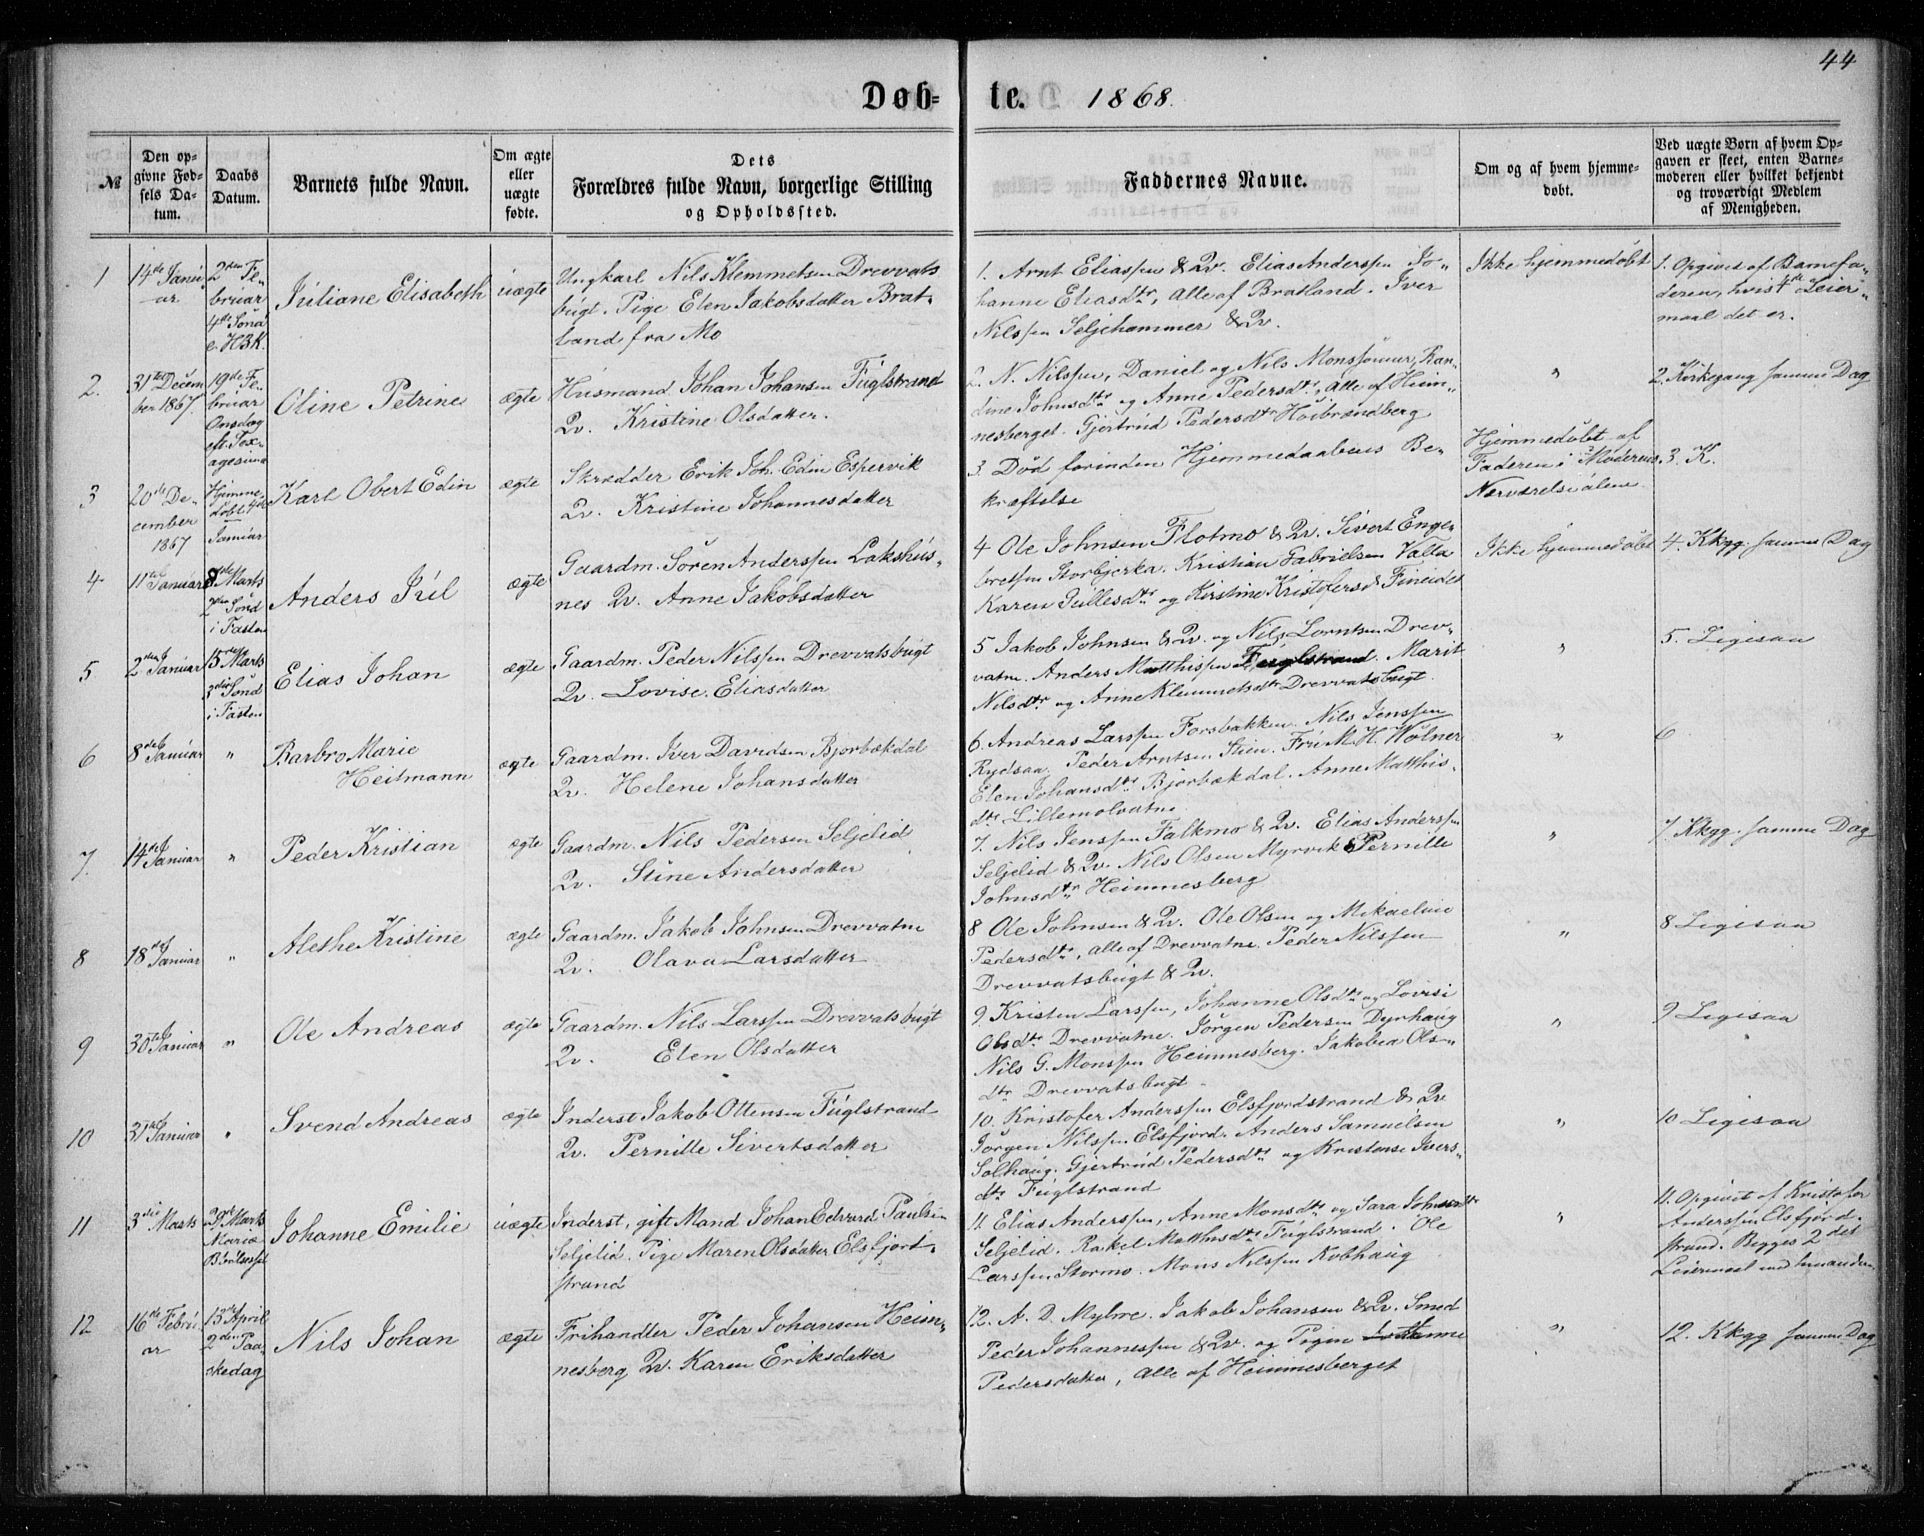 44
Døb-te. 1868.
№
Den op-
givne Fød-
sels Da-
tum.
Daabs
Datum.
Barnets fulde Navn.
Om ægte
eller
uægte
fødte.
Dets
Forældres fulde Navn, borgerlige Stilling
og Opholdssted.
Faddernes Navne.
Om og af hvem hjemme-
døbt.
Ved uægte Børn af hvem Op-
gaven er skeet, enten Barne-
moderen eller hvilket bekjendt
og troværdigt Medlem
af Menigheden.
1
14de Janu-
ar
2den Fe-
bruar
4de Sønd
e. H3K.
Juliane Elisabeth
uægte
Ungkarl Nils Klemmetsen Drevvats
bugt. Pige Elen Jakobsdatter Brat-
land fra Mo
1. Arnt Eliassen & Qv. Elias Anderssen Jo-
hanne Eliasdtr, alle af Bratland. Iver
Nilssen Seljehammer & Qv.
Ikke hjemmedøbt
1. Opgivet af Barnefa-
deren, hvis 4de Leier-
maal det er.
2.
31te Decem
ber 1867.
19de Fe-
bruar
Onsdag
eft. Sex-
agesima
Oline Petrine
ægte
Husmand Johan Johansen Fuglstrand
Qv. Kristine Olsdatter.
2. N. Nilssen, Daniel og Nils Monssønner, Ran-
dine Johnsdtr og Anne Pedersdtr, alle af Heim-
nesberget. Gjertrud Pedersdtr Høibrændberg
"
2. Kirkegang samme Dag
3
20de De-
cember
1867
Hjemme-
døbt 4de
Januar
Karl Obert Edin
ægte
Skrædder Erik Joh. Edin Espervik
Qv. Kristine Johannesdatter
3 Død forinden Hjemmedaabens Be-
kræftelse
Hjemmedøbt af
Faderen i Moderens
Nærværelse alene
3. K.
4
11te Januar
8de Marts
2den Sønd
i Fasten
Anders Juel
ægte
Gaardm. Søren Anderssen Lakshus-
nes Qv. Anne Jakobsdatter
4 Ole Johnsen Flotmo & Qv. Sivert Enge-
bretsen Storbjerka. Kristian Gabrielsen Valla
Karen Tullesdtr og Kirstine Kristofersd Fineidet
Ikke hjemmedøbt
4. Kkgg. samme Dag
5
2den Januar
15de Marts
3die Sønd
i Fasten
Elias Johan
ægte
Gaardm. Peder Nilssen Drevvatsbugt
Qv. Lovise Eliasdatter
5 Jakob Johnsen & Qv. og Nils Lorntsen Drev-
vatne. Anders Matthissen Fuglstrand. Marit
Nilsdtr og Anne Klemmetsdtr Drevvatsbugt.
"
5. Ligesaa
6
8de Januar
"
Barbro Marie
Heitmann
ægte
Gaardm. Iver Davidsen Bjørbækdal
Qv. Helene Johansdatter
6. Andreas Larssen Forsbakken. Nils Jenssen
Rydsaa. Peder Arntsen Stien. Fru M. H. Wolner
Elen Johansdtr Bjørbækdal. Anne Matthis-
dtr Lillemolvatne
"
6
7.
14de Januar
"
Peder Kristian
ægte
Gaardm. Nils Pedersen Seljelid
Qv. Stine Andersdatter
7. Nils Jenssen Falkmo & Qv. Elias Anderssen
Seljelid & Qv. Nils Olsen Myrvik & Pernille
Johnsdtr Heimnesberg
"
7. Kkgg. samme Dag
8
18de Januar
"
Alethe Kristine
ægte
Gaardm. Jakob Johnsen Drevvatne
Qv. Olava Larsdatter
8 Ole Johnsen & Qv. Ole Olsen og Mikaeline
Pedersdtr, alle af Drevvatne. Peder Nilssen
Drevvatsbugt & Qv.
"
8 Ligesaa
9
30te Januar
"
Ole Andreas
ægte
Gaardm. Nils Larssen Drevvatsbugt
Qv. Elen Olsdatter
9. Kristen Larssen, Johanne Olsdtr og Lovise
Olsdtr Drevvatne. Jørgen Pedersen Dyrhaug
Nils G. Monssen Heimnesberg. Jakobea Ols-
dtr Drevvatsbugt
"
9 Ligesaa
10
31te Januar
"
Svend Andreas
ægte
Inderst Jakob Ottensen Fuglstrand
Qv. Pernille Sivertsdatter
10. Kristofer Anderssen Elsfjordstrand & Qv
Jørgen Nilssen Elsfjord. Anders Samuelsen
Solhaug. Gjertrud Pedersdtr og Kristense Ivers-
dtr Fuglstrand
"
10 Ligesaa
11
3die Marts
29de Marts
Mariæ
Bebudelsesf
Johanne Emilie
uægte
Inderst, gift Mand Johan Edvard Paulsen
Seljelid. Pige Maren Olsdatter Elsfjord-
strand
11. Elias Anderssen, Anne Monsdtr og Sara Johnsdtr
Seljelid. Rakel Matthisdtr Fuglstrand. Ole
Larssen Stormo. Mons Nilssen Kobhaug
"
11. Opgivet af Kristofer
Anderssen Elsfjord-
strand. Begges 2det
Leiermaal med hinanden
12
16de Febru-
ar
13de April
2den Paa-
skedag
Nils Johan
ægte
Frihandler Peder Johansen Heim-
nesberg Qv. Karen Eriksdatter
12. A. D. Myhre. Jakob Johansen & Qv. Smed
Peder Johannessen & Qv. og Pigen Hanne
Pedersdatter, alle af Heimnesberget
"
12. Kkgg samme Dag